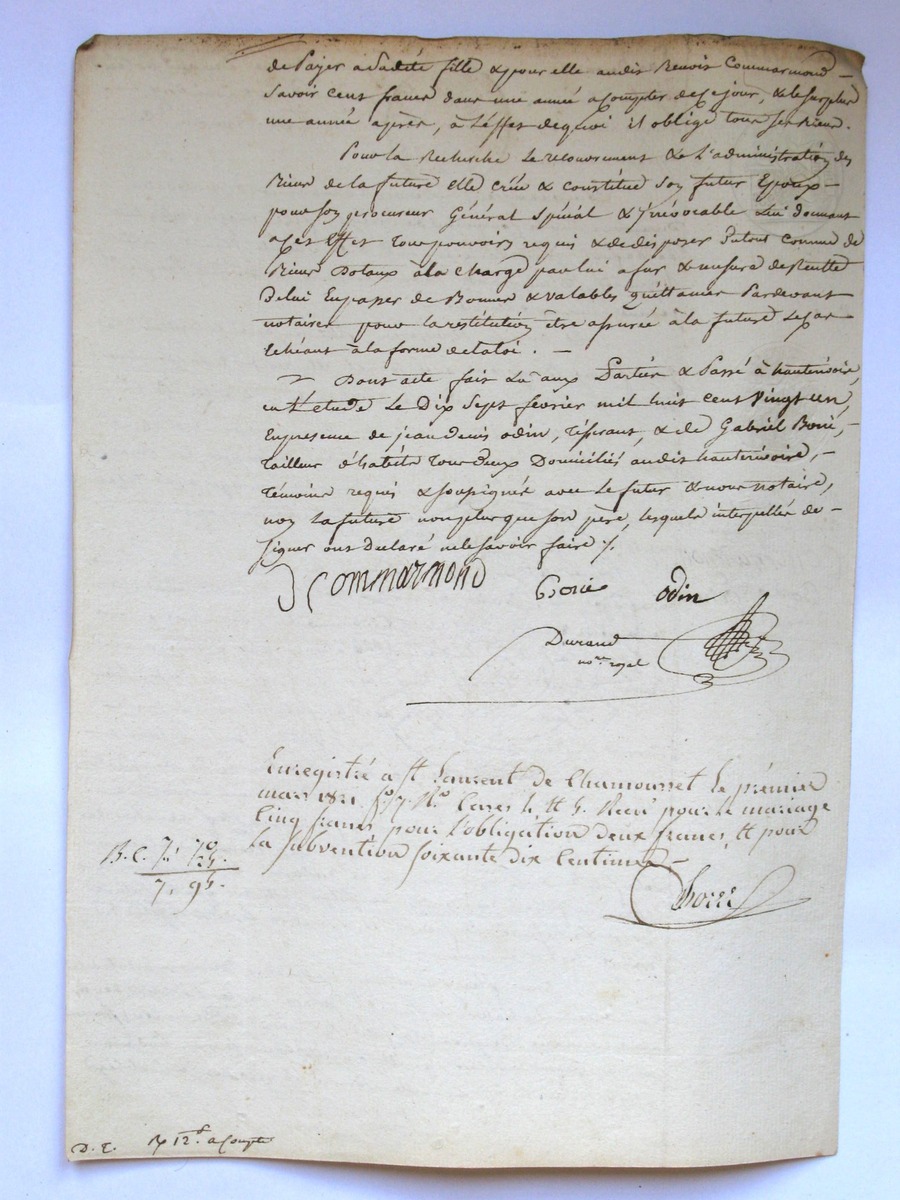 de Payer a Sadite fille & pour elle audit Benoit Commarmond
Savoir cent francs dans une année a Compter de ce jour, & le surplus
une année après, à L'effet de quoi il oblige tous ses Biens.
Pour la Recherche Le recouvrement & L'administration des
Biens de la future elle crée & constitue Son futur Epoux
pour Son procureur Général Spécial & irrévocable Lui donnant
a cet Effet tous pouvoirs requis & de disposer du tout Comme de
Biens Dotaux à la charge par lui a fur & mesure de Recette
de lui En passer de Bonnes & valables quittances Pardevant
notaires pour la restitution être assurée à la future Le cas
Echéant à la forme de la loi.
Dont acte fait Lu aux Parties & Passé à hauterivoire,
en L'etude Le Dix Sept fevrier mil huit cent Vingt un,
En presence de jean denis odin, tisserant, & de Gabriel Borié,
tailleur d'habits tous deux Domiciliés audit hauterivoire,
témoins requis & soussignés avec Le futur & nous notaire,
non La future non plus que son père, lesquels interpellés de
Signer ont Declaré ne le Savoir faire ./.
Commarmond Borié odin
Durand
no.re royal
Enregistré à St Laurent de Chamousset le premier
mars 1821. fo. 7. Vo. Cases 4. et 5. Recu pour le mariage
Cinq francs pour l'obligation deux francs, et pour
la Subvention Soixante dix Centimes
B. C. 7f 70
25.
7, 95.
D. E. 12f. a Compte